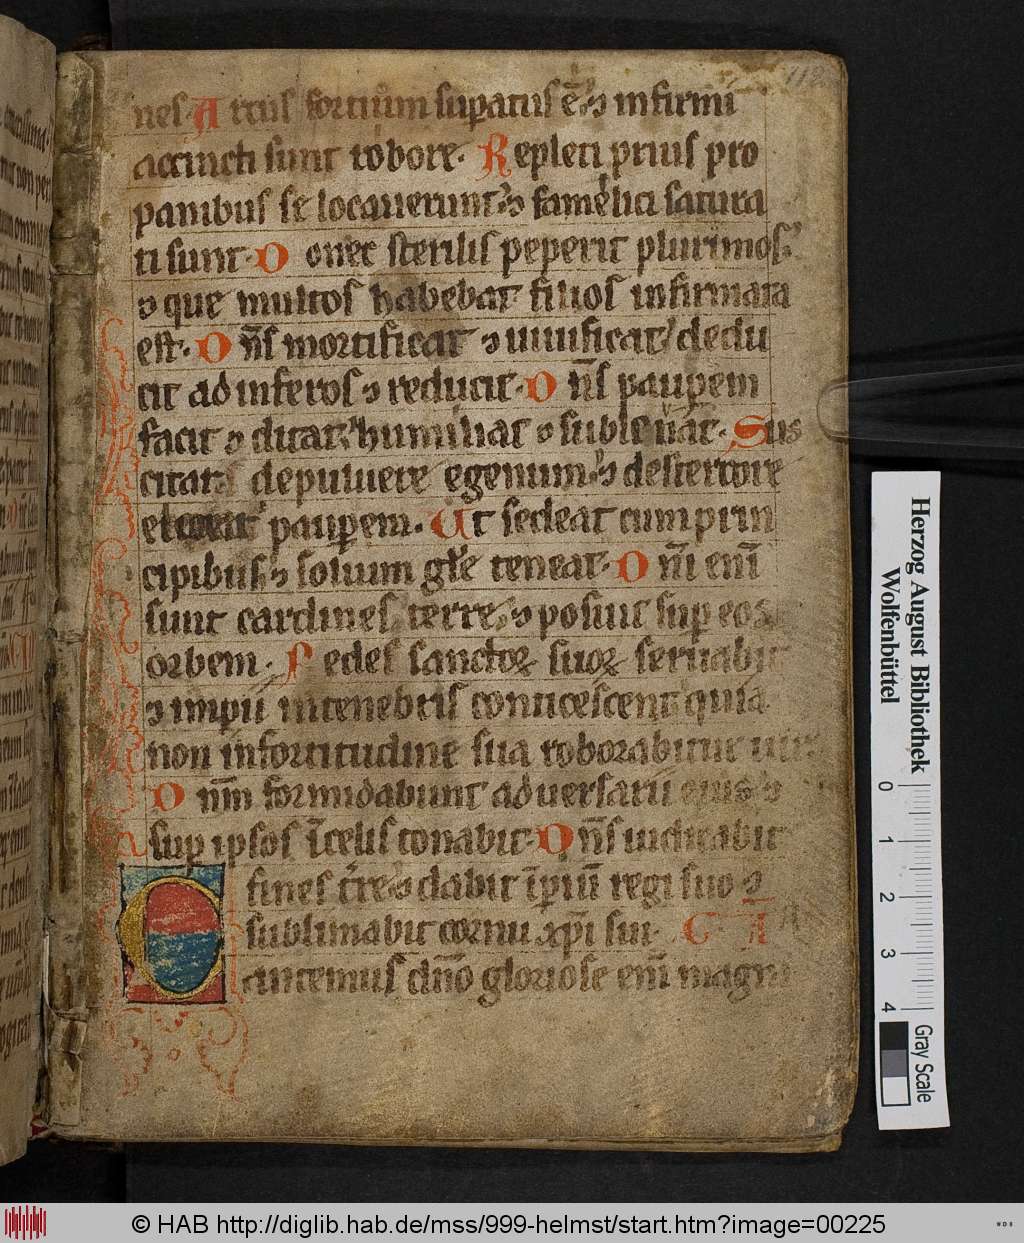 112
nes. Arcus fortium suꝑatus ē. ⁊ infirmi
accincti sunt robore. Repleti prius pro
panibus se locauerunt. ⁊ famelici satura
ti sunt. Donec sterilis peperit plurimos.
⁊ que multos habebat filios infirmata
est. Dn̄s mortificat ⁊ uiuificat. dedu
cit ad inferos ⁊ reducit. Dn̄s pauꝑem
facit ⁊ ditat. humiliat ⁊ subleuat. Sus
citat de puluere egenum. ⁊ de stercore
pauꝑem. Ut sedeat cum prin
cipibus. ⁊ solium gl̄e teneat. Dn̄i eni̅
sunt cardines terre. ⁊ posuit suꝑ eos
orbem. Pedes sanctoꝝ suoꝝ seruabit
⁊ impii in tenebris conticescent quia
non in fortitudine sua roborabitur uir
Dnm̄ formidabunt aduersarii eius. ⁊
suꝑ ipsos ī celis tonabit. Dn̄s iudicabit
fines tr̄e. ⁊ dabit īꝑiū regi suo ⁊
sublimabit cornu xp̄i sui. C A
Cantemus dn̄o gloriose eni̅ magni
Herzog August Bibliothek
Wolfenbüttel
0 1 2 3 4
Gray Scale
© HAB http://diglib.hab.de/mss/999-helmst/start.htm?image=00225